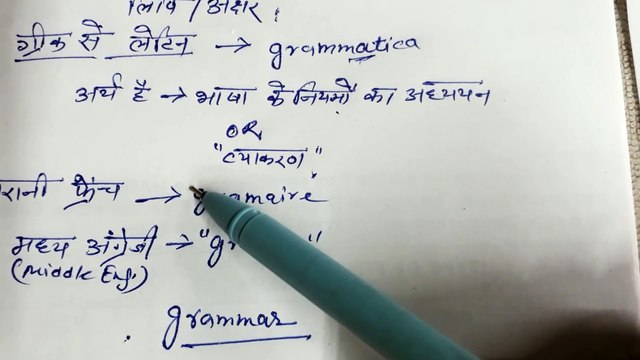 लिपि / अक्षर
ग्रीक से लेटिन → grammatica
अर्थ है → भाषा के नियमों का अध्ययन
OR
"व्याकरण"
रानी फ्रेंच → gramaire
मध्य अंग्रेजी → "
(Middle Eng.)
grammar